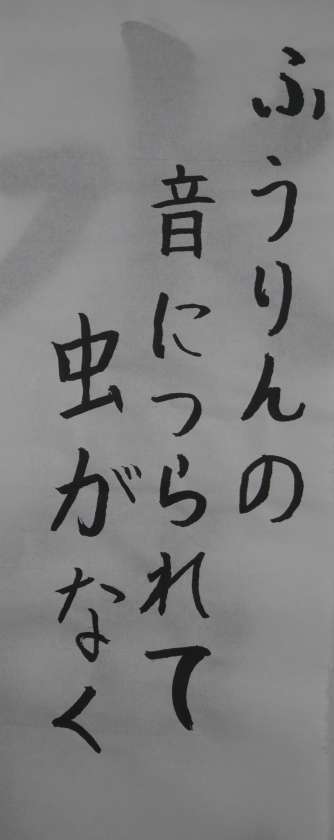 ふうりんの
音につられて
虫がなく